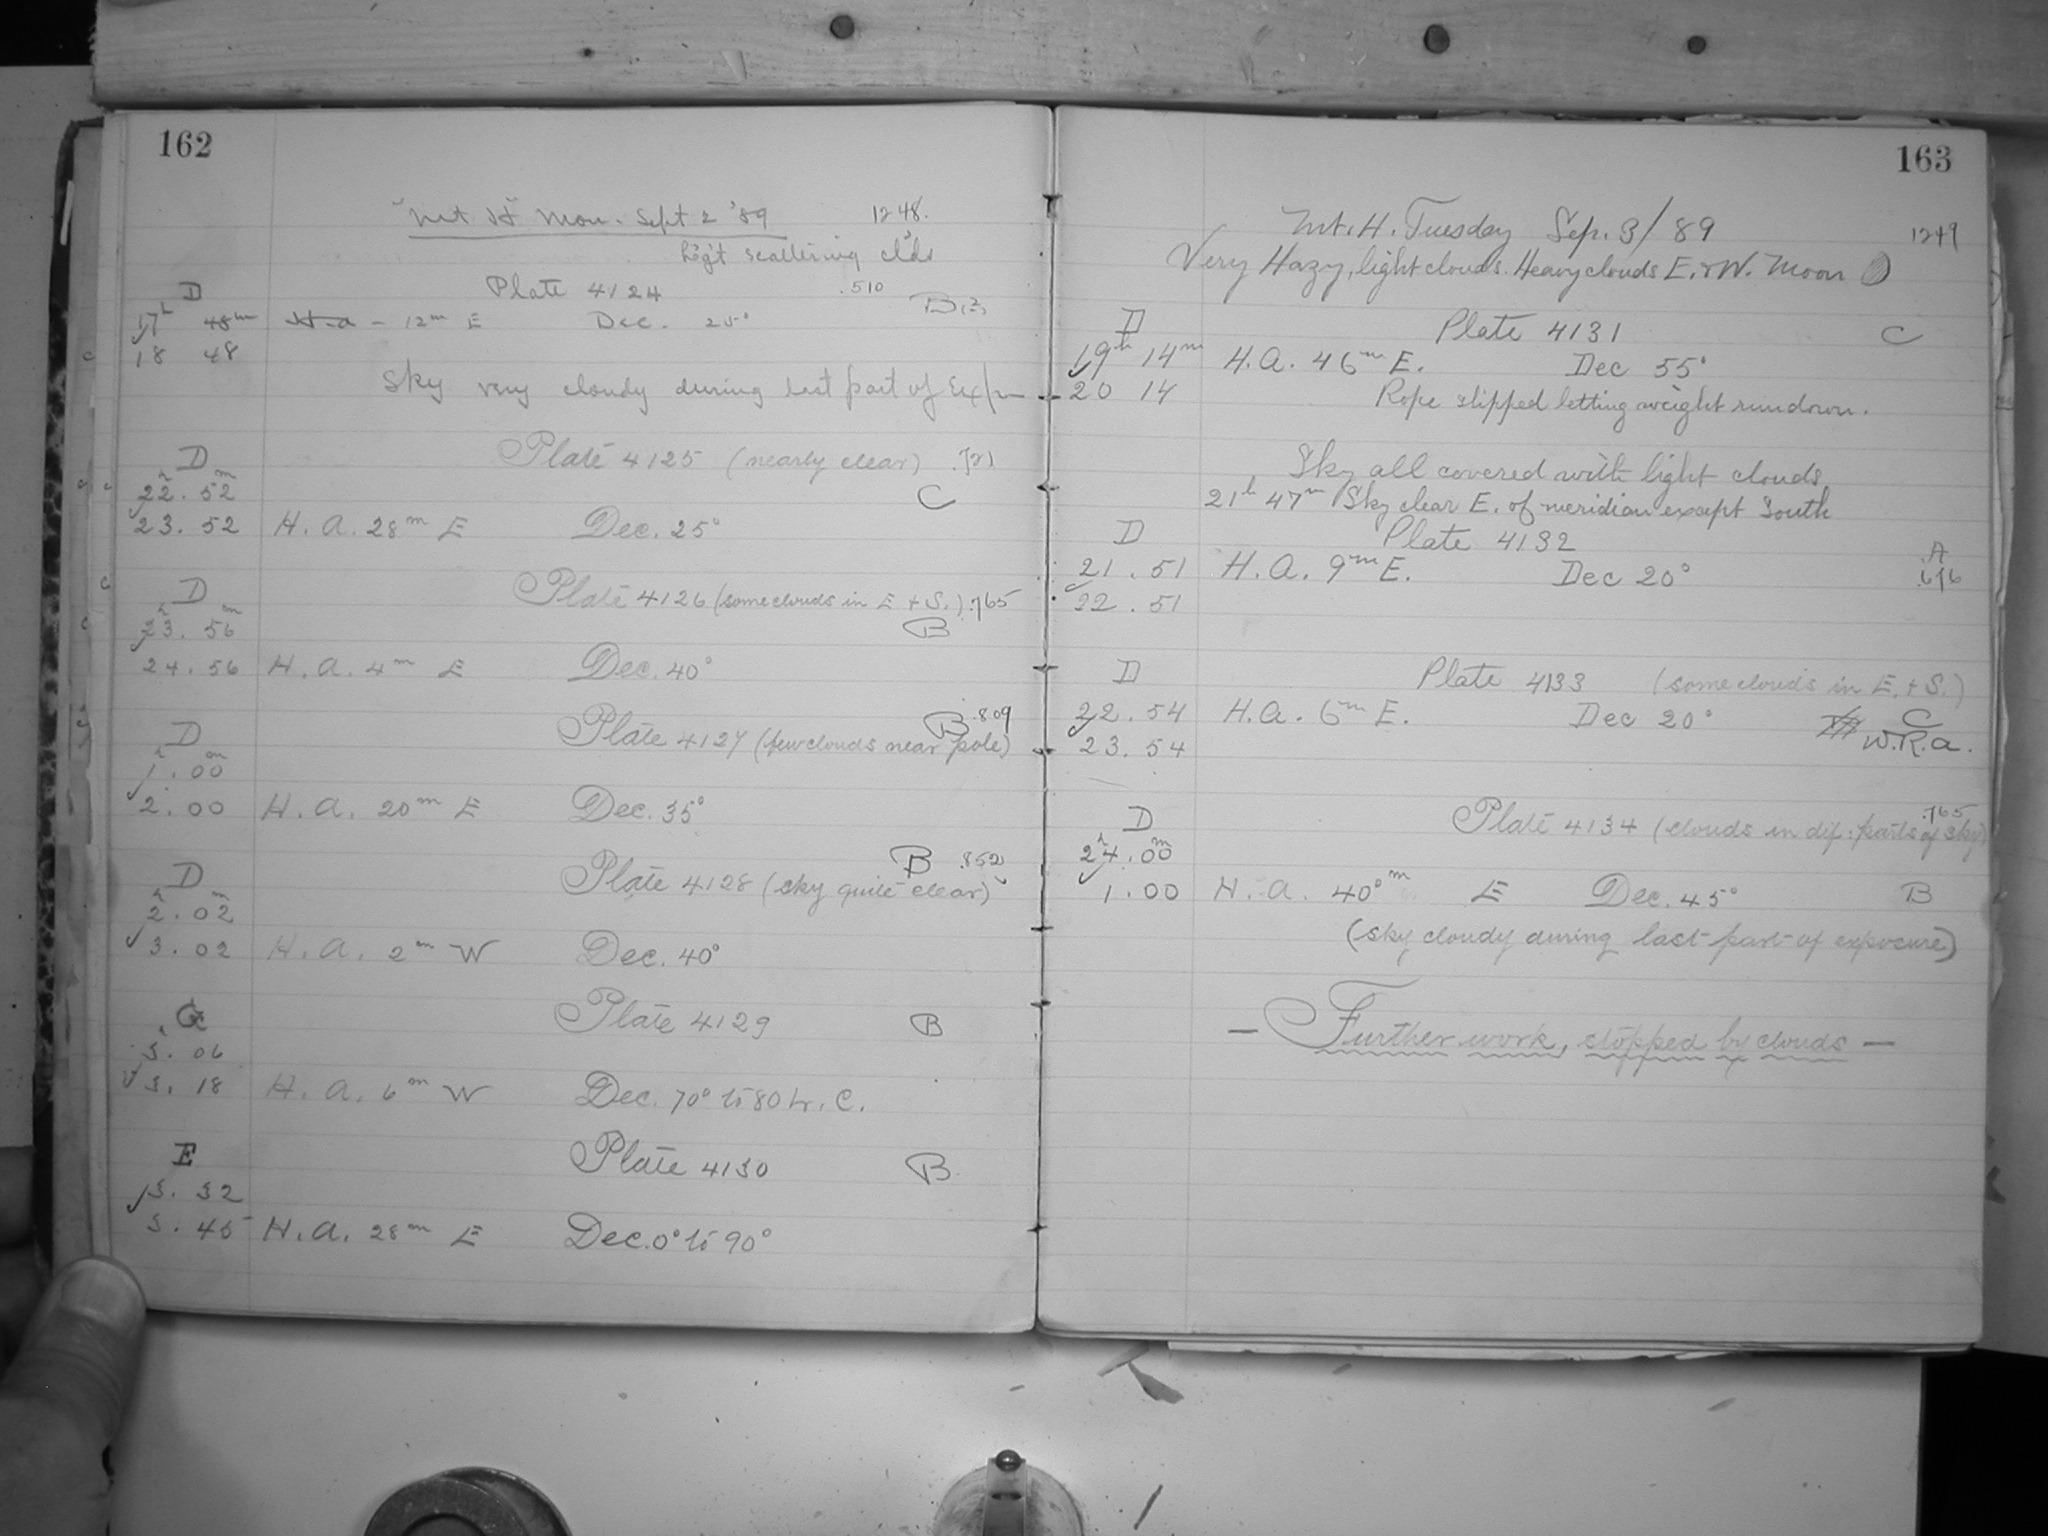 162
Mt H Mon. Sept 2 '89 1248.
Light scattering clds
D Plate 4124 .510 B(?)
17h 48m H.a - 12m E Dec. 25°
18 48
Sky very cloudy during last part of Exp
D Plate 4125 (nearly clear) .721
22h. 52m C
23. 52 H. A. 28m E Dec. 25°
D Plate 4126 (some clouds in E + S.) .765
23h. 56m B
24. 56 H. A. 4m E Dec. 40°
D Plate 4127 (few clouds near pole) B .809
1h. 00m
2. 00 H. A. 20m E Dec. 35°
D Plate 4128 (sky quite clear) B .852
2h. 02m
3. 02 H. A. 2m W Dec. 40°
G Plate 4129 B
3h. 06
3. 18 H. A. 6m W Dec. 70° to 80 L. C.
E Plate 4130 B
3. 32
3. 45 H. A. 28m E Dec. 0° to 90°
163
Mt. H. Tuesday Sep. 3/89 1249
Very Hazy, light clouds. Heavy clouds E. & W. Moon
D Plate 4131 C
19h 14m H.A. 46m E. Dec 55°
20 14 Rope slipped letting weight run down.
Sky all covered with light clouds
21h 47m Sky clear E. of meridian except South
D Plate 4132 A
21. 51 H. A. 9m E. Dec 20° .676
22. 51
D Plate 4133 (some clouds in E. + S.)
22. 54 H. A. 6m E. Dec 20° C
23. 54 W.R.A.
D Plate 4134 (clouds in dif: parts of sky) .765
24h. 00m
1. 00 H. A. 40m E Dec. 45° B
(sky cloudy during last part of exposure)
— Further work, stopped by clouds —